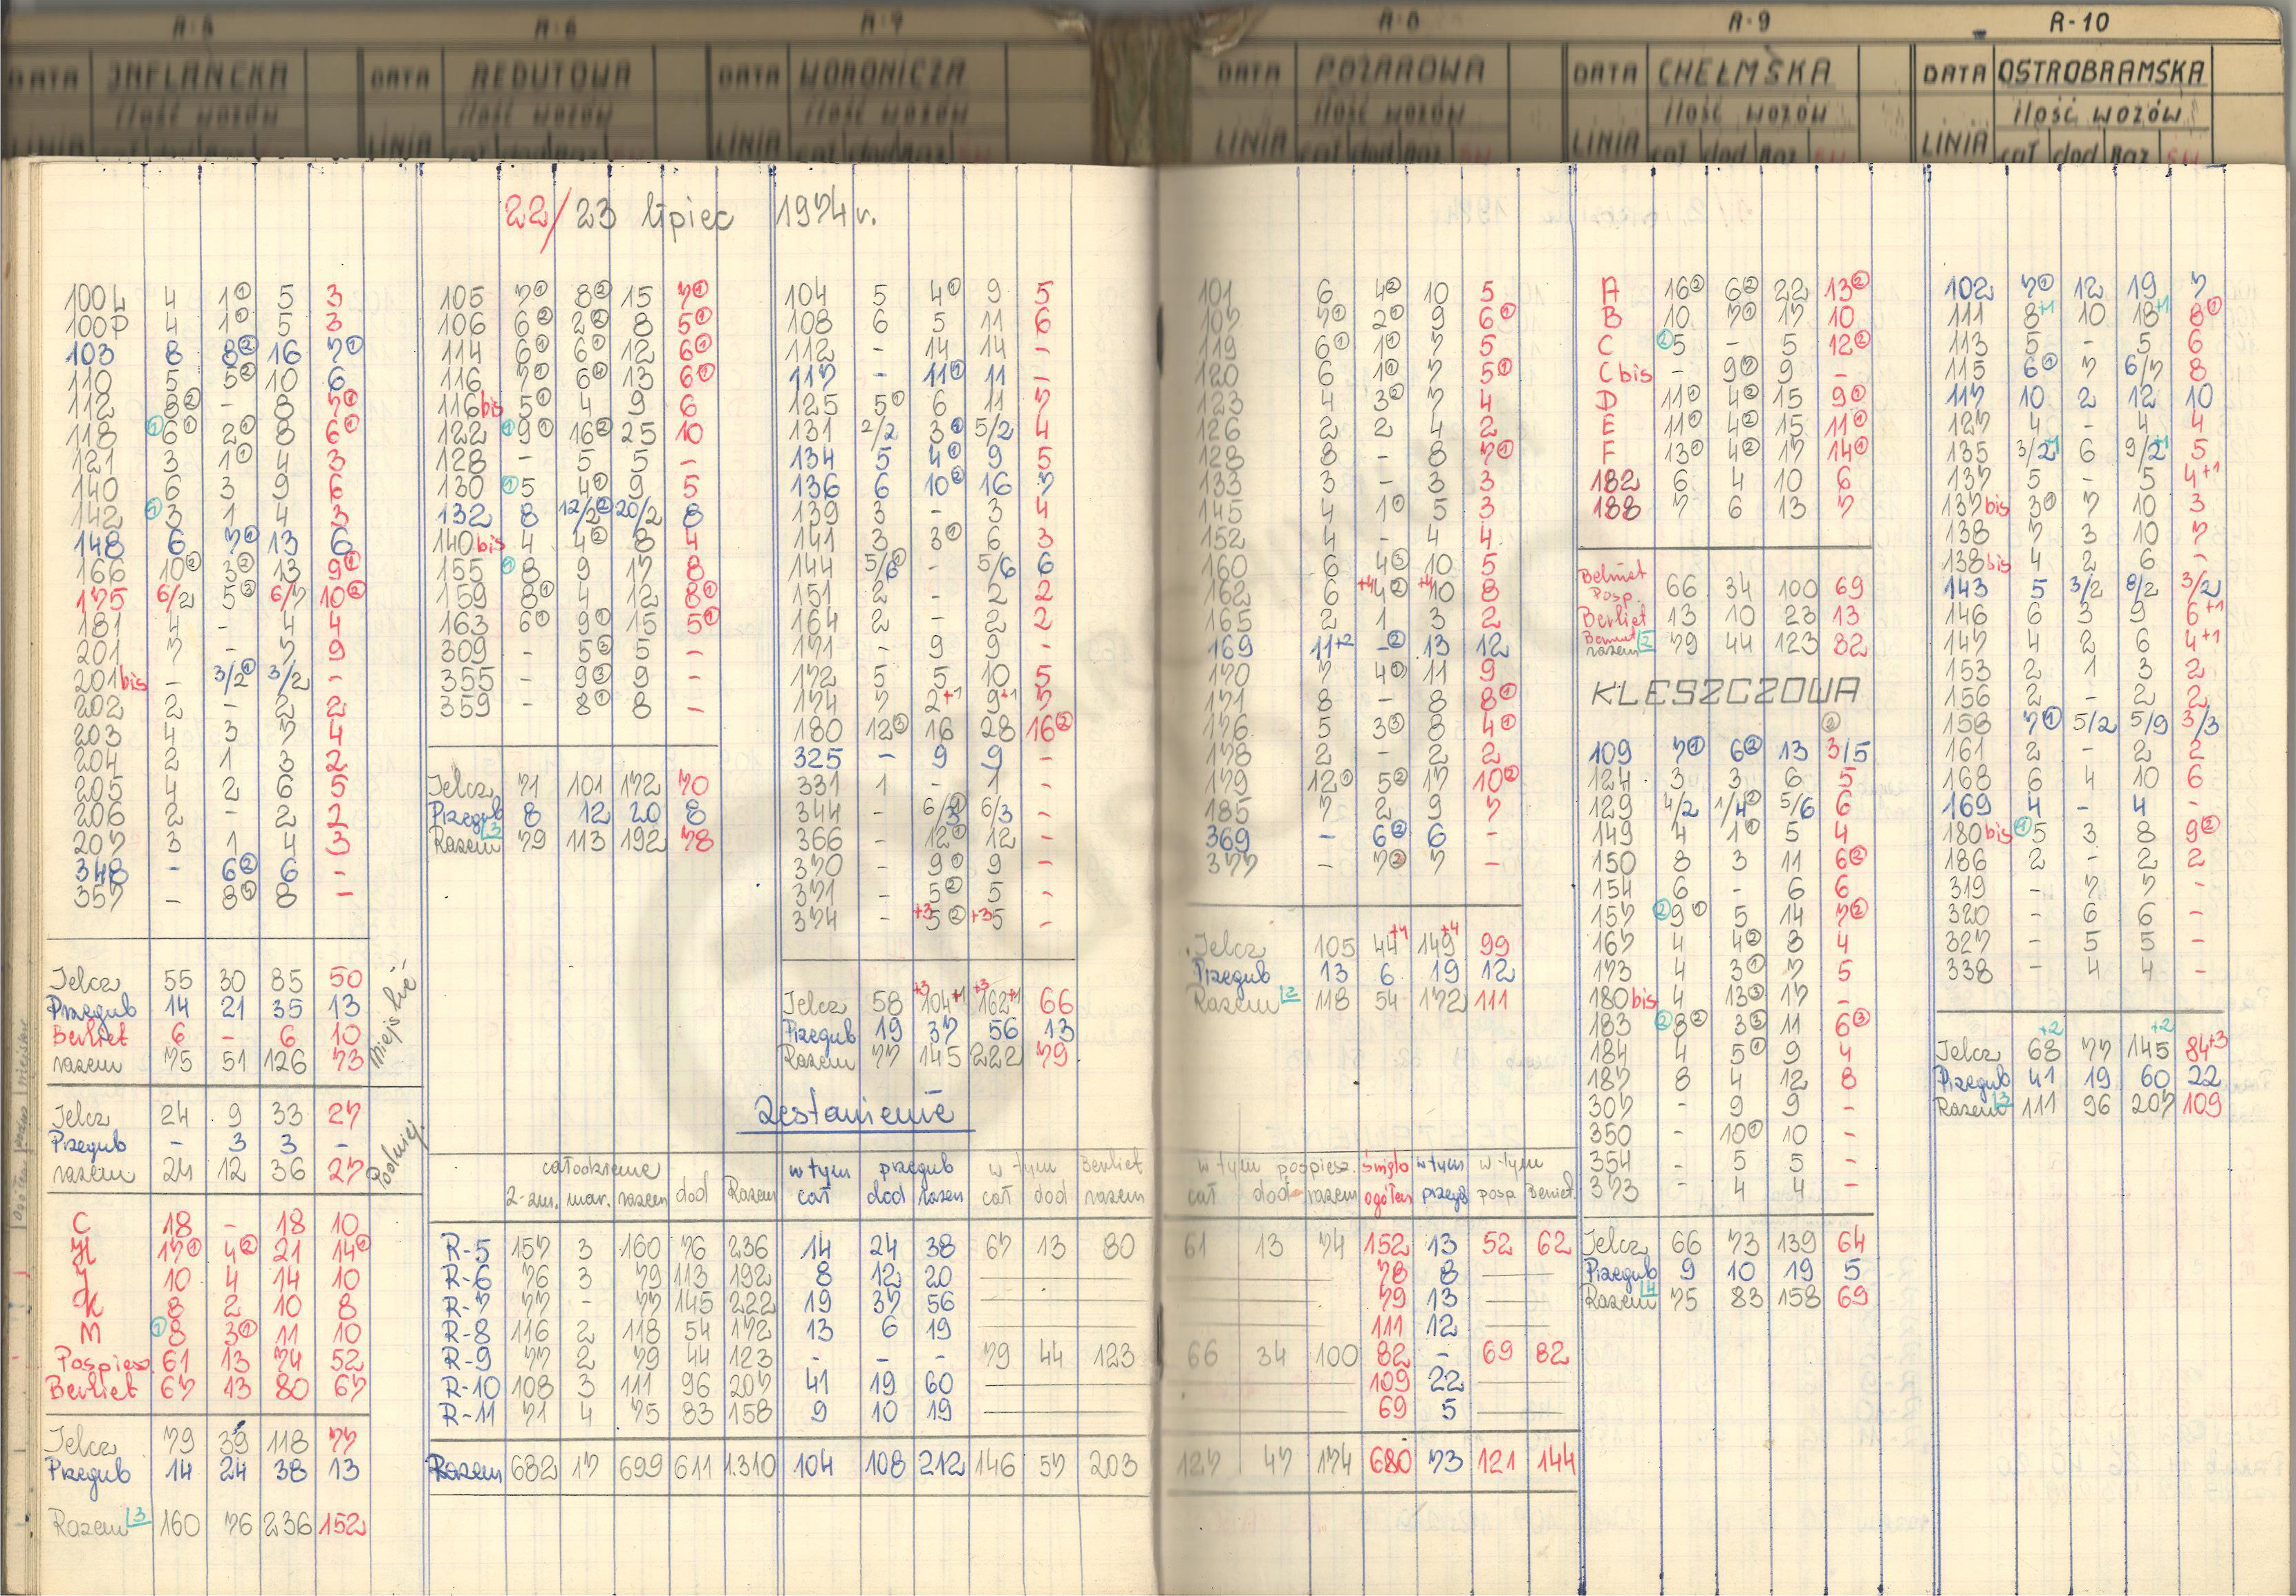 R-5 R-6 R-7 R-8 R-9 R-10
DATA INFLANCKA DATA REDUTOWA DATA WORONICZA DATA POŻAROWA DATA CHEŁMSKA DATA OSTROBRAMSKA
ilość wozów ilość wozów ilość wozów ilość wozów ilość wozów ilość wozów
LINIA LINIA cał dod Raz LINIA cał dod Raz LINIA cał dod Raz LINIA cał dod Raz LINIA cał dod Raz
22/23 lipiec 1974 r.
100Ł 4 1① 5 3
100P 4 1① 5 3
103 8 8② 16 7①
110 5 5② 10 6
112 8② - 8 7①
118 ①6① 2① 8 6①
121 3 1① 4 3
140 6 3 9 6
142 ①3 1 4 3
148 6 7① 13 6
166 10② 3② 13 9①
175 6/2 5③ 6/7 10②
181 4 - 4 4
201 7 - 7 9
201bis - 3/2① 3/2 -
202 2 - 2 2
203 4 3 7 4
204 2 1 3 2
205 4 2 6 5
206 2 - 2 2
207 3 1 4 3
348 - 6② 6 -
357 - 8① 8 -
Jelcz 55 30 85 50
Przegub 14 21 35 13
Berliet 6 - 6 10
razem 75 51 126 73
Miejskie
Jelcz 24 9 33 27
Przegub - 3 3 -
razem 24 12 36 27
Podmiej.
C 18 - 18 10
H 17① 4② 21 14①
J 10 4 14 10
K 8 2 10 8
M ①8 3① 11 10
Pospiesz 61 13 74 52
Berliet 67 13 80 67
Jelcz 79 39 118 77
Przegub 14 24 38 13
Razem 3 160 76 236 152
105 7① 8② 15 7①
106 6② 2② 8 5①
114 6① 6① 12 6①
116 7① 6① 13 6①
116bis 5① 4 9 6
122 ①9① 16② 25 10
128 - 5 5 -
130 ①5 4① 9 5
132 8 12/2② 20/2 8
140bis 4 4② 8 4
155 ①8 9 17 8
159 8① 4 12 8①
163 6① 9① 15 5①
309 - 5② 5 -
355 - 9③ 9 -
359 - 8① 8 -
Jelcz 71 101 172 70
Przegub 8 12 20 8
Razem 3 79 113 192 78
104 5 4① 9 5
108 6 5 11 6
112 - 14 14 -
117 - 11① 11 -
125 5① 6 11 7
131 2/2 3① 5/2 4
134 5 4① 9 5
136 6 10② 16 7
139 3 - 3 4
141 3 3① 6 3
144 5/6① - 5/6 6
151 2 - 2 2
164 2 - 2 2
171 - 9 9 -
172 5 5 10 5
174 7 2+1 9+1 7
180 12③ 16 28 16②
325 - 9 9 -
331 1 - 1 -
344 - 6/3① 6/3 -
366 - 12① 12 -
370 - 9① 9 -
371 - 5② 5 -
374 - +3 5② +3 5 -
Jelcz 58 +3 104+1 +3 162+1 66
Przegub 19 37 56 13
Razem 77 145 222 79
101 6 4② 10 5
107 7① 2① 9 6①
119 6① 1① 7 5
120 6 1① 7 5①
123 4 3② 7 4
126 2 2 4 2
128 8 - 8 7①
133 3 - 3 3
145 4 1① 5 3
152 4 - 4 4
160 6 4③ 10 5
162 6 +4 4② +4 10 8
165 2 1 3 2
169 11+2 -② 13 12
170 7 4① 11 9
171 8 - 8 8①
176 5 3③ 8 4①
178 2 - 2 2
179 12① 5② 17 10②
185 7 2 9 7
369 - 6② 6 -
377 - 7② 7 -
Jelcz 105 44+4 149+4 99
Przegub 13 6 19 12
Razem 2 118 54 172 111
A 16② 6② 22 13②
B 10 7① 17 10
C ②5 - 5 12②
C bis - 9① 9 -
D 11① 4② 15 9①
E 11① 4② 15 11①
F 13① 4② 17 14①
182 6 4 10 6
188 7 6 13 7
Berliet Posp. 66 34 100 69
Berliet 13 10 23 13
Berliet razem 2 79 44 123 82
KLESZCZOWA
109 7① 6② 13 3/5②
124 3 3 6 5
129 4/2 1/4② 5/6 6
149 4 1① 5 4
150 8 3 11 6②
154 6 - 6 6
157 ②9① 5 14 7②
167 4 4② 8 4
173 4 3① 7 5
180bis 4 13③ 17 -
183 ②8② 3③ 11 6③
184 4 5① 9 4
187 8 4 12 8
307 - 9 9 -
350 - 10① 10 -
354 - 5 5 -
373 - 4 4 -
Jelcz 66 73 139 64
Przegub 9 10 19 5
Razem 4 75 83 158 69
102 7① 12 19 7
111 8+1 10 18+1 8①
113 5 - 5 6
115 6① 7 6/7 8
117 10 2 12 10
127 4 - 4 4
135 3/2+1 6 9/2+1 5
137 5 - 5 4+1
137bis 3① 7 10 3
138 7 3 10 7
138bis 4 2 6 -
143 5 3/2 8/2 3/2
146 6 3 9 6+1
147 4 2 6 4+1
153 2 1 3 2
156 2 - 2 2
158 7① 5/2 5/9 3/3
161 2 - 2 2
168 6 4 10 6
169 4 - 4 -
180bis ①5 3 8 9②
186 2 - 2 2
319 - 7 7 -
320 - 6 6 -
327 - 5 5 -
338 - 4 4 -
Jelcz 68+2 77 145+2 84+3
Przegub 41 19 60 22
Razem 3 111 96 207 109
Zestawienie
całodzienne w tym przegub w tym Berliet w tym pospiesz. święto w tym w tym
2-zm. mar. razem dod Razem cał dod razem cał dod razem cał dod razem ogółem przegb posp Berliet.
R-5 157 3 160 76 236 14 24 38 67 13 80 61 13 74 152 13 52 62
R-6 76 3 79 113 192 8 12 20 78 8
R-7 77 - 77 145 222 19 37 56 79 13
R-8 116 2 118 54 172 13 6 19 111 12
R-9 77 2 79 44 123 - - - 79 44 123 66 34 100 82 - 69 82
R-10 108 3 111 96 207 41 19 60 109 22
R-11 71 4 75 83 158 9 10 19 69 5
Razem 682 17 699 611 1.310 104 108 212 146 57 203 127 47 174 680 73 121 144